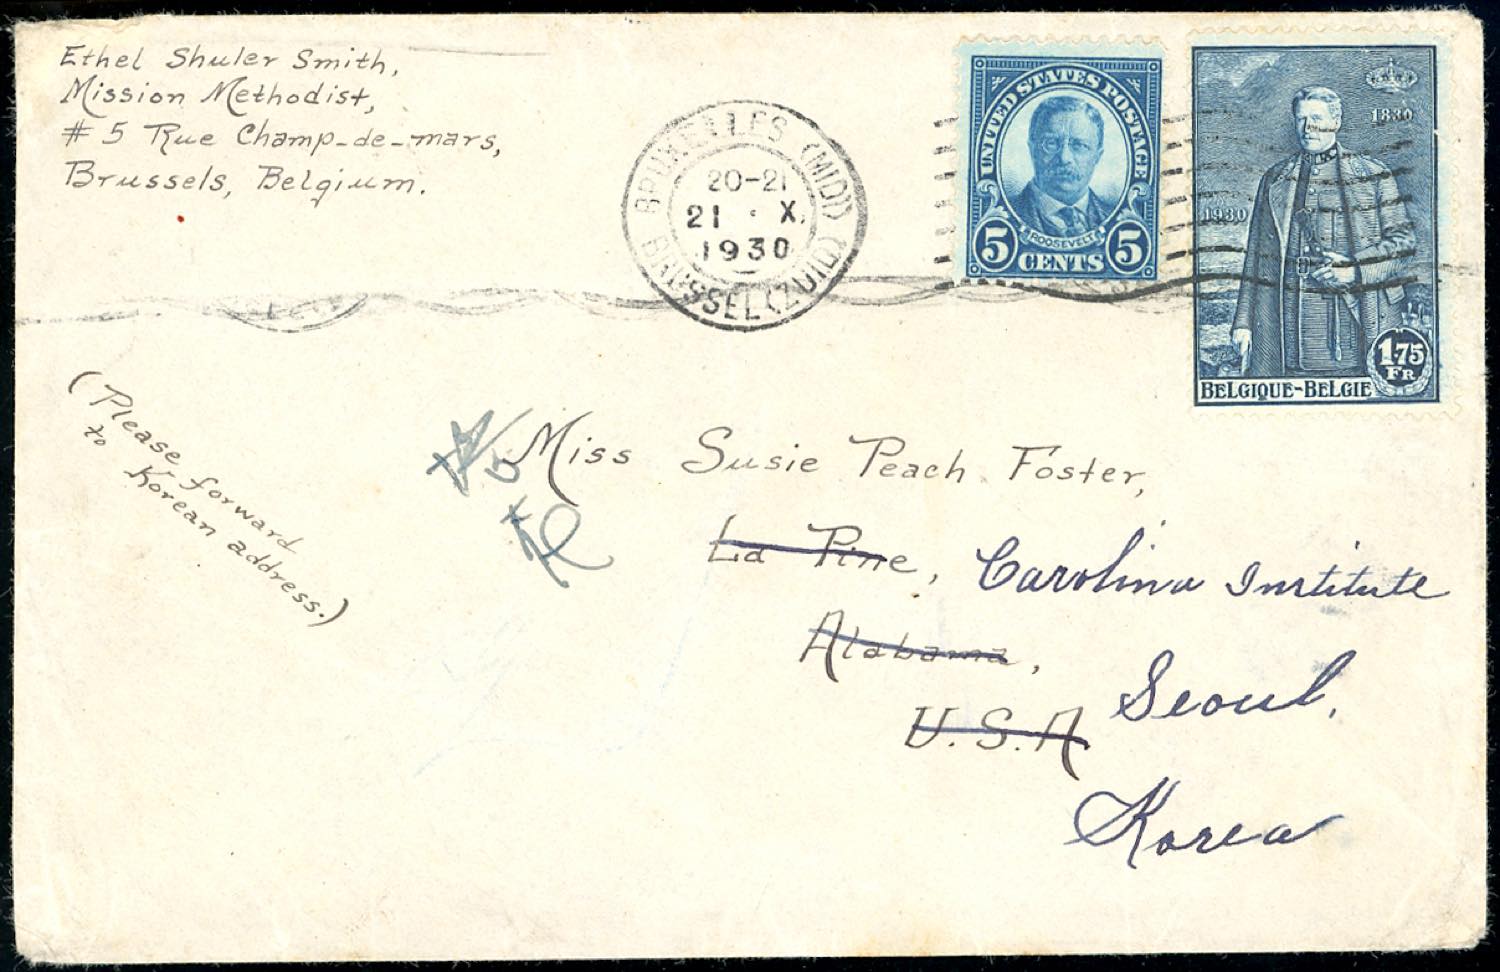 Ethel Shuler Smith,
Mission Methodist,
# 5 Rue Champ-de-mars,
Brussels, Belgium.
BRUXELLES (MIDI)
20-21
21 · X.
1930
BRUSSEL (ZUID)
UNITED STATES POSTAGE
ROOSEVELT
5 CENTS 5
1830
1930
1 75
FR
BELGIQUE-BELGIE
(Please forward
to Korean address.)
Miss Susie Peach Foster,
La Pine, Carolina Institute
Alabama,
Seoul,
U.S.A
Korea